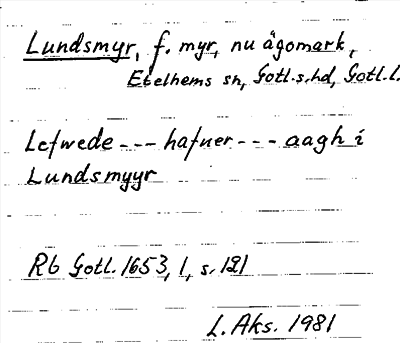 Lundsmyr, f. myr, nu ägomark,
Etelhems sn, Gotl.s.hd, Gotl.l.
Lefwede --- hafuer --- aagh i
Lundsmyyr
Rb Gotl. 1653, 1, s. 121
L. Aks. 1981